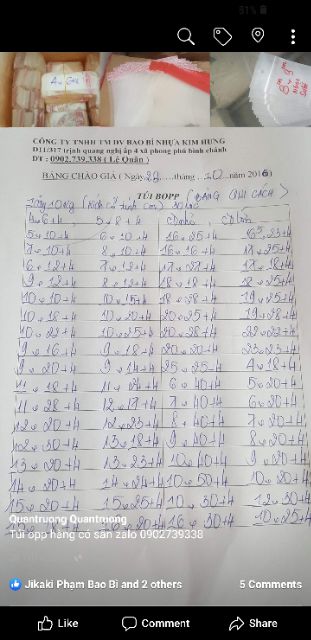 51%
CÔNG TY TNHH TM DV BAO BÌ NHỰA KIM HƯNG
D11/317 trịnh quang nghị ấp 4 xã phong phú bình chánh
ĐT : 0902.739.338 ( Lê Quân )
BẢNG CHÀO GIÁ ( Ngày 22 ...tháng ... 10 ...năm 2016)
TÚI BOPP ( BẢNG QUI CÁCH )
4 x 6+4 5 x 8+4
5 x 10+4 6 x 10+4 16 x 25+4
7 x 10+4 8 x 10+4 16 x 16+4 17 x 25+4
6 x 12+4 7 x 12+4 17 x 27+4 17 x 18+4
9 x 12+4 8 x 12+4 18 x 18+4 18 x 25+4
10 x 10+4 10 x 15+4 18 x 28+4 19 x 25+4
10 x 18+4 10 x 20+4 20 x 25+4 19 x 28+4
10 x 22+4 10 x 25+4 20 x 28+4 22 x 22+4
9 x 16+4 9 x 18+4 20 x 20+4 23 x 23+4
9 x 20+4 9 x 14+4 25 x 25+4 4 x 18+4
11 x 18+4 11 x 24+4 6 x 40+4 5 x 20+4
11 x 28+4 12 x 17+4 7 x 40+4 6 x 20+4
12 x 20+4 12 x 23+4 8 x 40+4 7 x 20+4
12 x 30+4 13 x 18+4 9 x 40+4 8 x 20+4
13 x 20+4 13 x 23+4 10 x 40+4 9 x 20+4
14 x 20+4 14 x 24+4 10 x 50+4 10 x 20+4
15 x 20+4 15 x 25+4 10 x 30+4 12 x 30+4
16 x 30+4 10 x 25+4
Quantruong Quantruong
Túi opp hàng có sẵn zalo 0902739338
Jikaki Phạm Bao Bì and 2 others 5 Comments
Like Comment Share